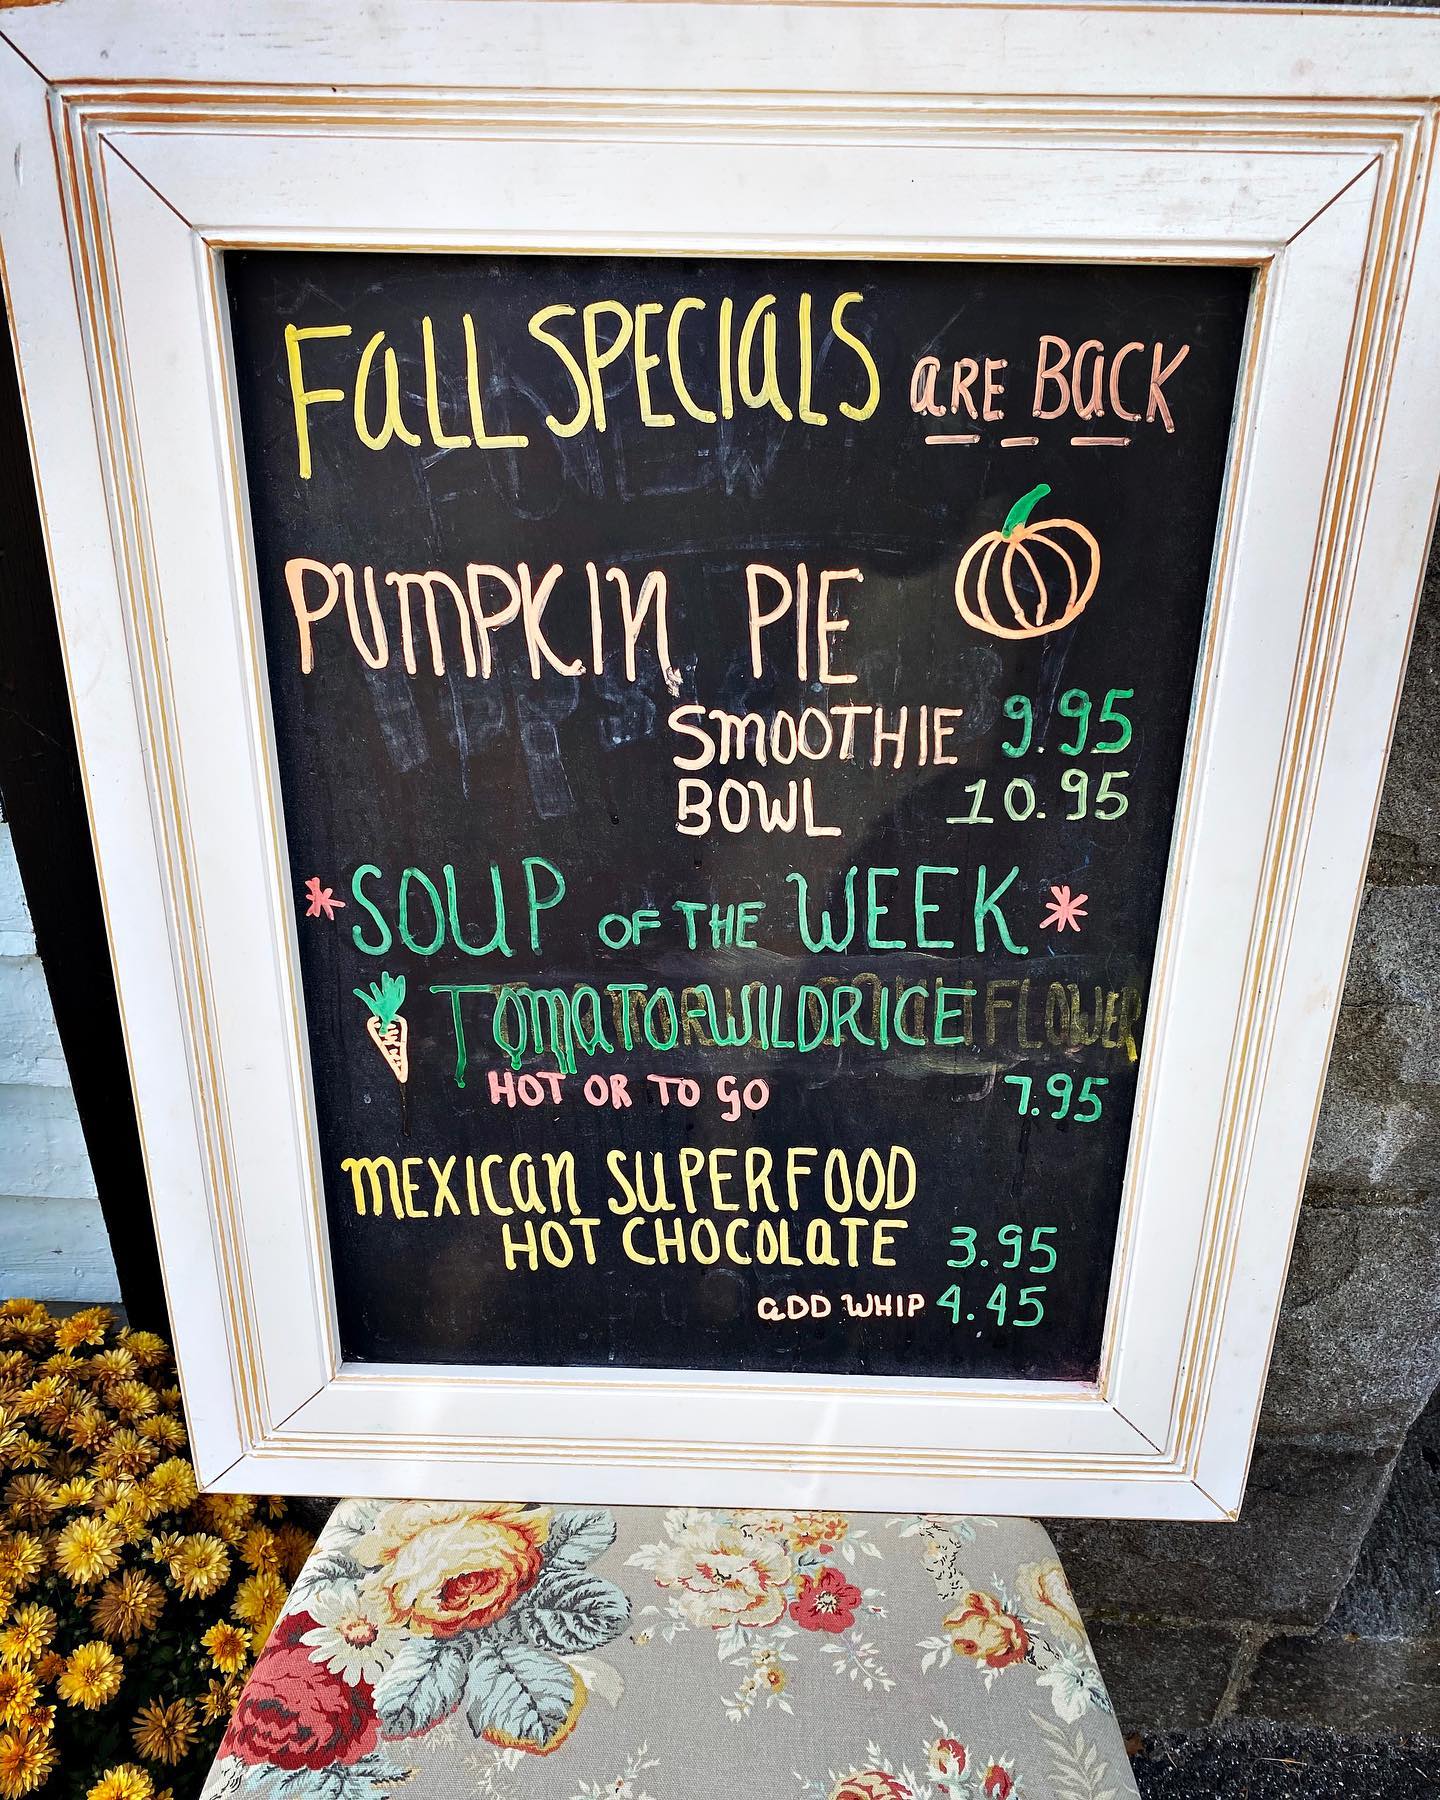 FALL SPECIALS ARE BACK
PUMPKIN PIE
SMOOTHIE 9.95
BOWL 10.95
*SOUP OF THE WEEK*
TOMATO-WILDRICE FLOWER
HOT OR TO GO 7.95
MEXICAN SUPERFOOD
HOT CHOCOLATE 3.95
ADD WHIP 4.45